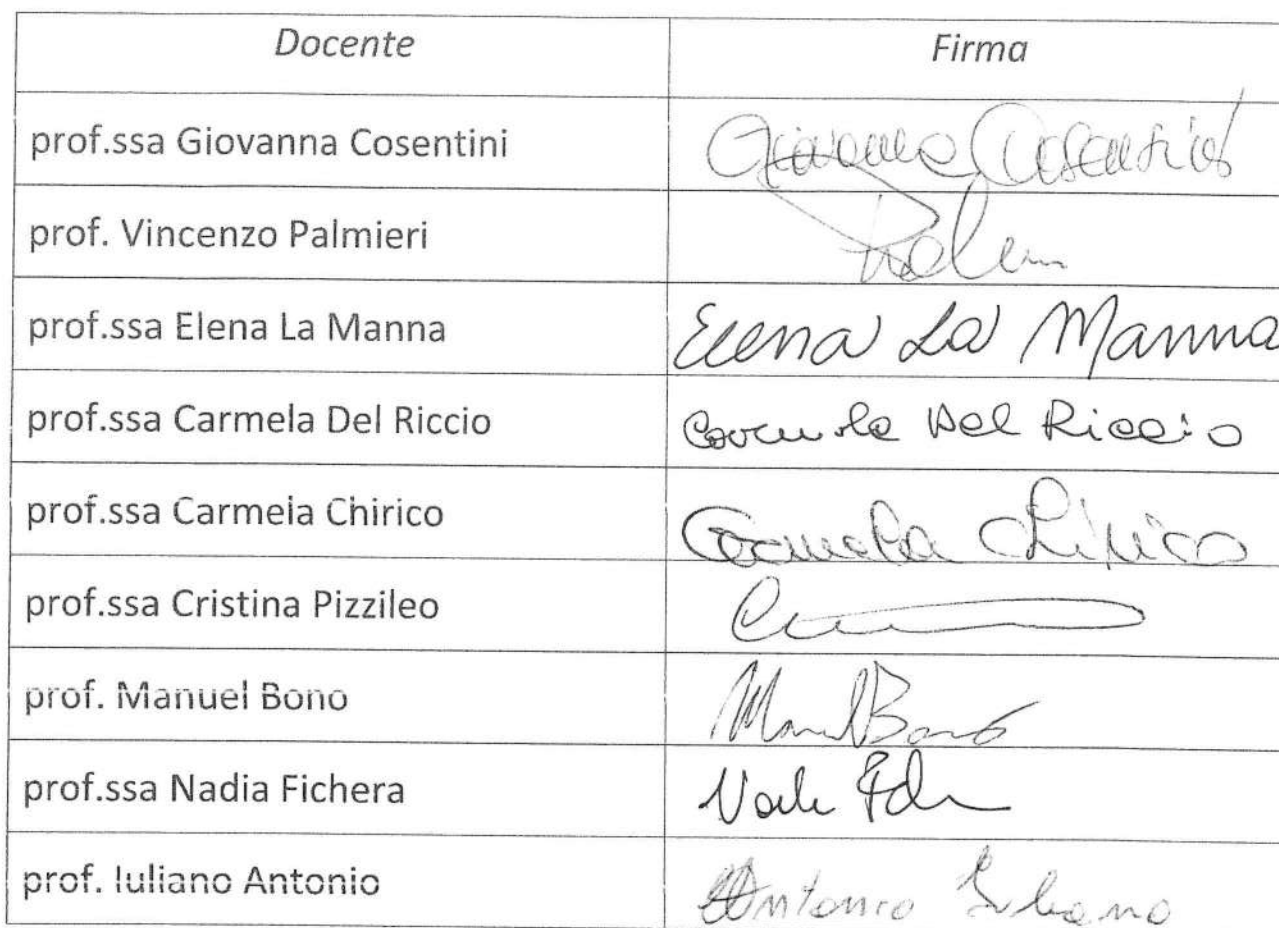 Docente Firma
prof.ssa Giovanna Cosentini Giovanna Cosentini
prof. Vincenzo Palmieri
prof.ssa Elena La Manna Elena La Manna
prof.ssa Carmela Del Riccio Carmela Del Riccio
prof.ssa Carmela Chirico Carmela Chirico
prof.ssa Cristina Pizzileo
prof. Manuel Bono Manuel Bono
prof.ssa Nadia Fichera
prof. Iuliano Antonio Antonio Iuliano